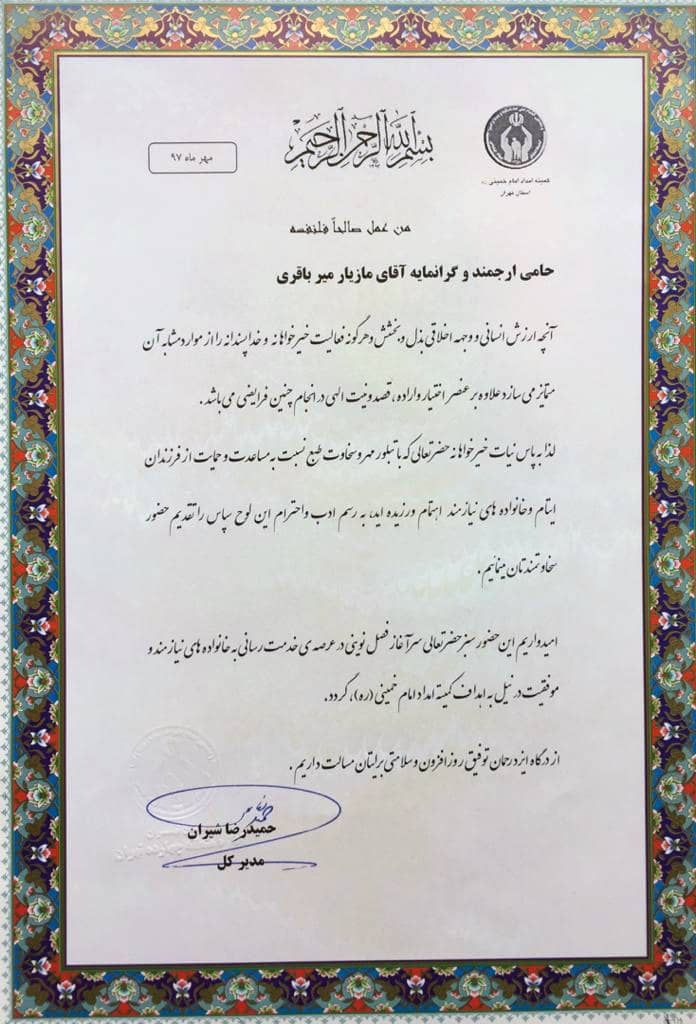 بسم الله الرحمن الرحیم
کمیته امداد امام خمینی (ره)
استان تهران
مهر ماه ۹۷
من عمل صالحاً فلنفسه
حامی ارجمند و گرانمایه آقای مازیار میر باقری
آنچه ارزش انسانی و وجهه اخلاقی بذل و بخشش و هرگونه فعالیت خیرخواهانه و خداپسندانه را از موارد مشابه آن
متمایز می سازد علاوه بر عنصر اختیار و اراده، قصد و نیت الهی در انجام چنین فرایضی می باشد.
لذا به پاس نیات خیرخواهانه حضرتعالی که با تبلور مهر و سخاوت طبع نسبت به مساعدت و حمایت از فرزندان
ایتام و خانواده های نیازمند اهتمام ورزیده اید، به رسم ادب و احترام این لوح سپاس را تقدیم حضور
سخاوتمندتان مینمائیم.
امیدواریم این حضور سبز حضرتعالی سرآغاز فصل نوینی در عرصه ی خدمت رسانی به خانواده های نیازمند و
موفقیت در نیل به اهداف کمیته امداد امام خمینی (ره)، گردد.
از درگاه ایزد رحمان توفیق روز افزون و سلامتی برایتان مسالت داریم.
حمیدرضا شیران
مدیر کل